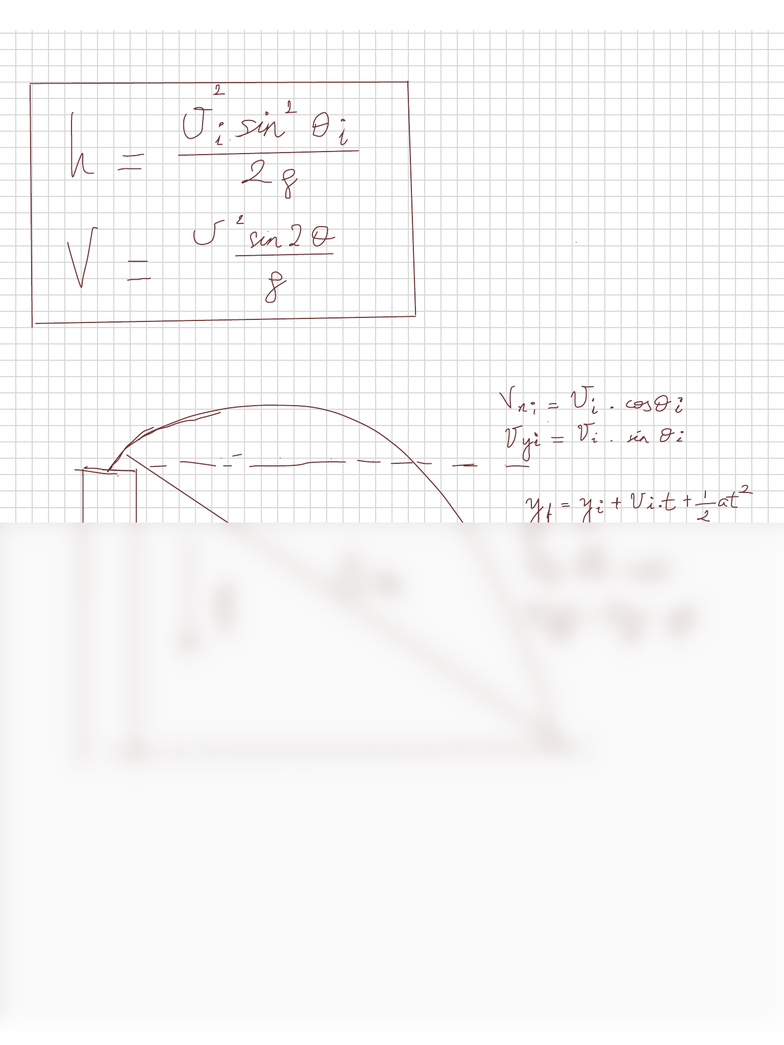 h = υᵢ² sin² θᵢ / 2g
V = υ² sin2θ / g
Vxi = υᵢ · cosθᵢ
Vyi = υᵢ · sin θᵢ
yf = yᵢ + υᵢ·t + 1/2 at²